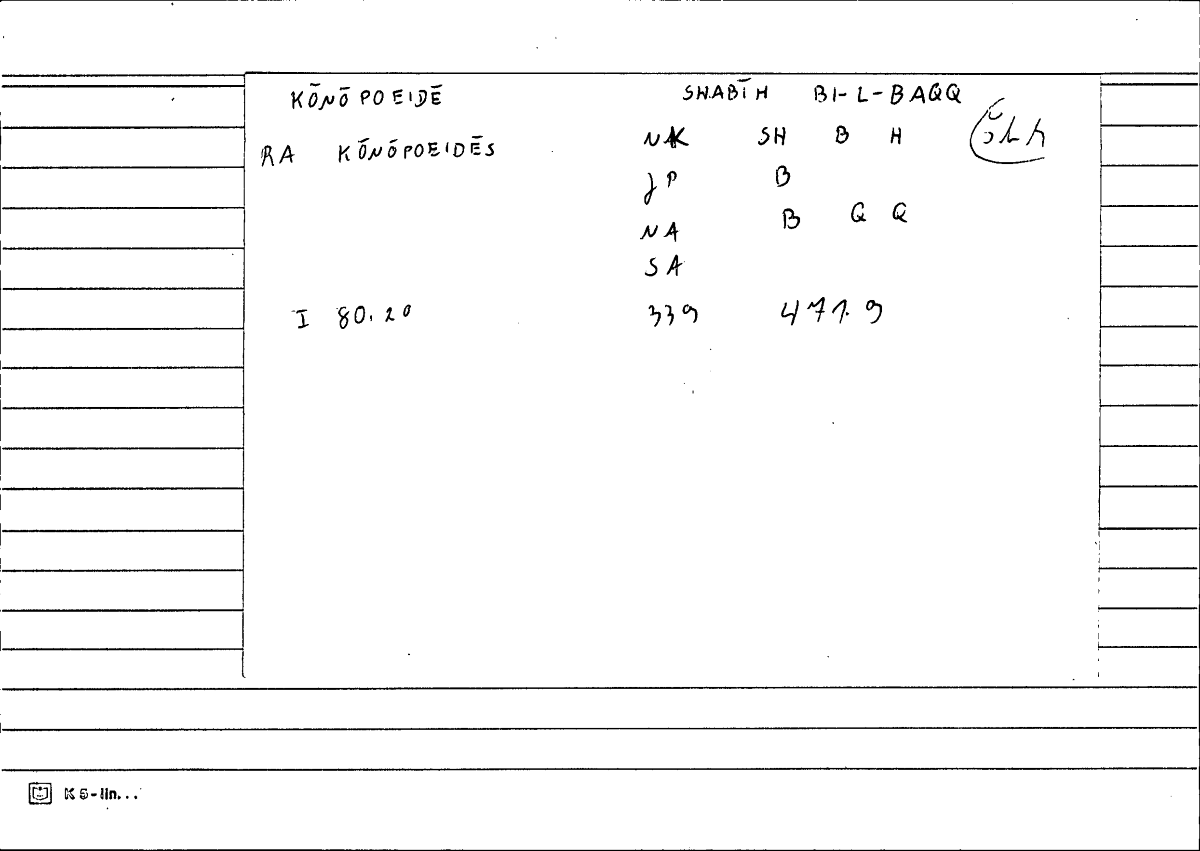 KŌNŌPOEIDĒ SHABĪH BI-L-BAQQ
RA KŌNŌPOEIDĒS NK SH B H
JP B
NA B Q Q
SA
I 80.20 339 471.9
K5-lin...